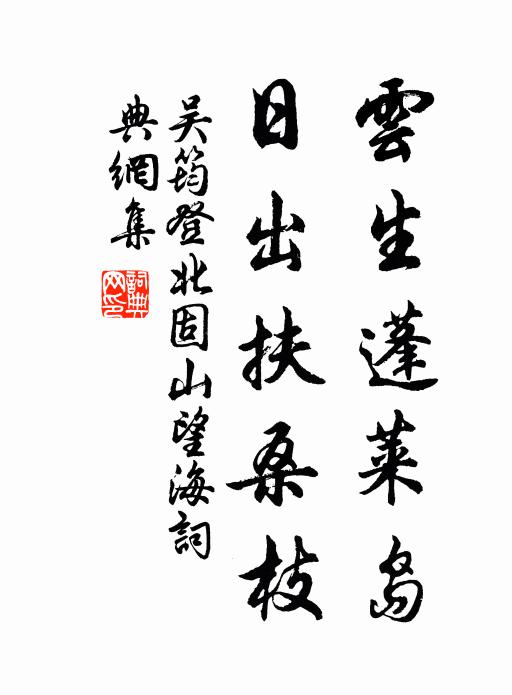 雲生蓬萊島
日出扶桑枝
吴筠登北固山望海詞
典網集
詞典网印